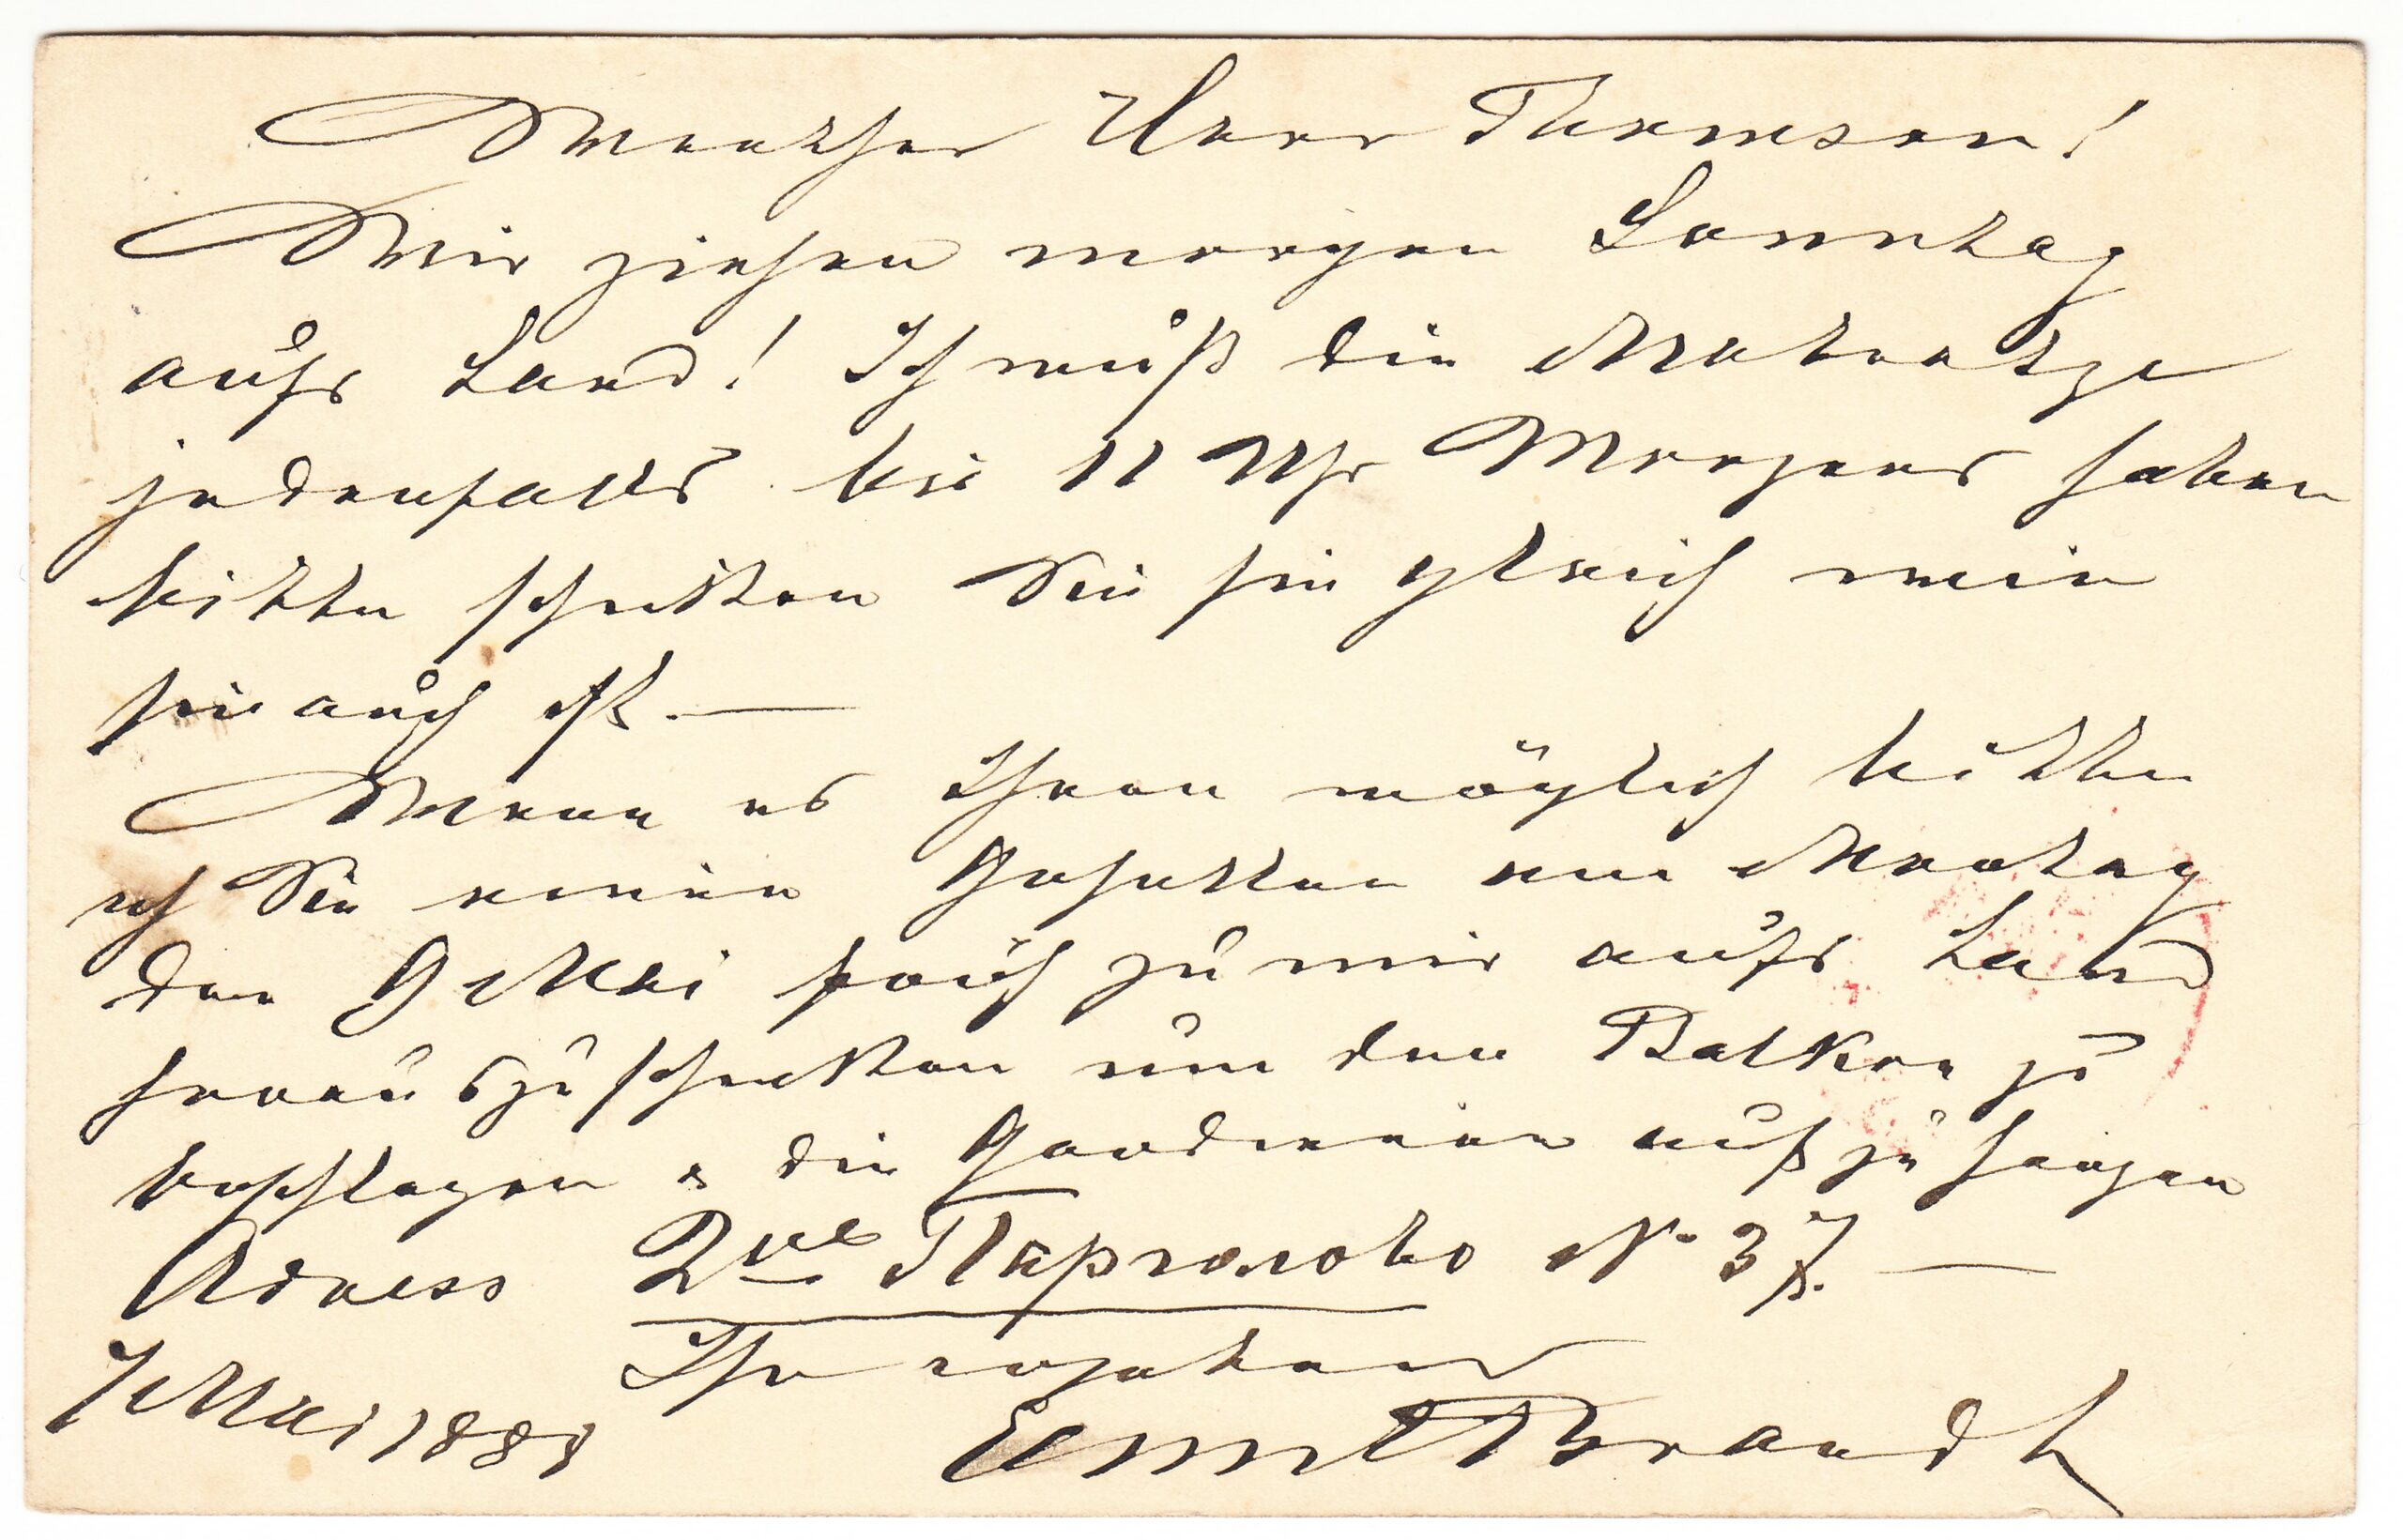 Werther Herr Thomson!
Wir ziehen morgen Sonntag
aufs Land! Ich muß die Matratze
jedenfalls bis 11 Uhr Morgens haben
bitte schicken Sie sie gleich wie
sie auch ist. —
Wenn es Ihnen möglich bitte
ich Sie einen Gehülfen am Montag
den 9 Mai früh zu mir aufs Land
herauszuschicken um den Balkon zu
beschlagen & die Gardinen aufzuhängen
Adress 2ое Парголово № 37. —
Ihr ergebener
7 Mai 1888 Brandt